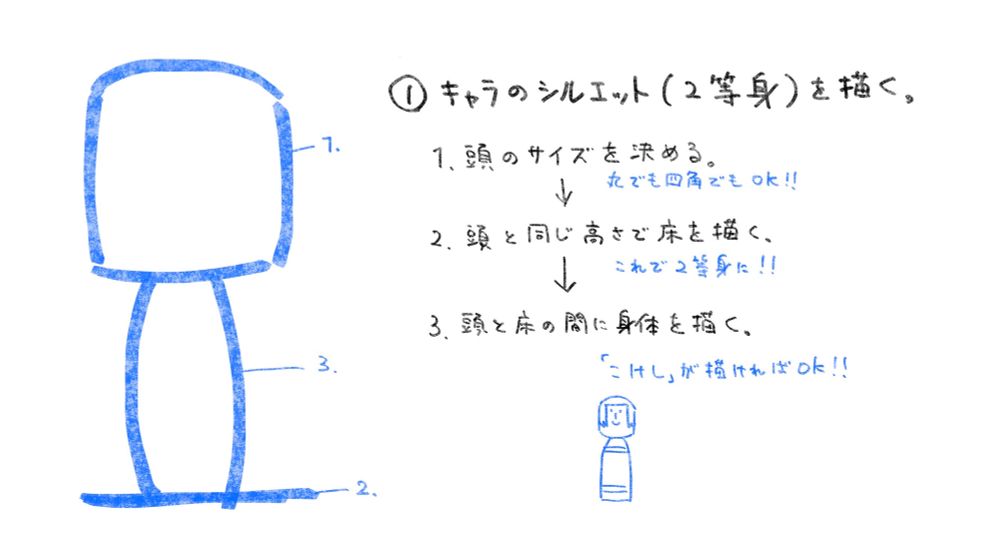 ① キャラのシルエット(2等身)を描く。
1. 頭のサイズを決める。
丸でも四角でもOK!!
↓
2. 頭と同じ高さで床を描く、
これで2等身に!!
↓
3. 頭と床の間に身体を描く。
「こけし」が描ければOK!!
1.
3.
2.